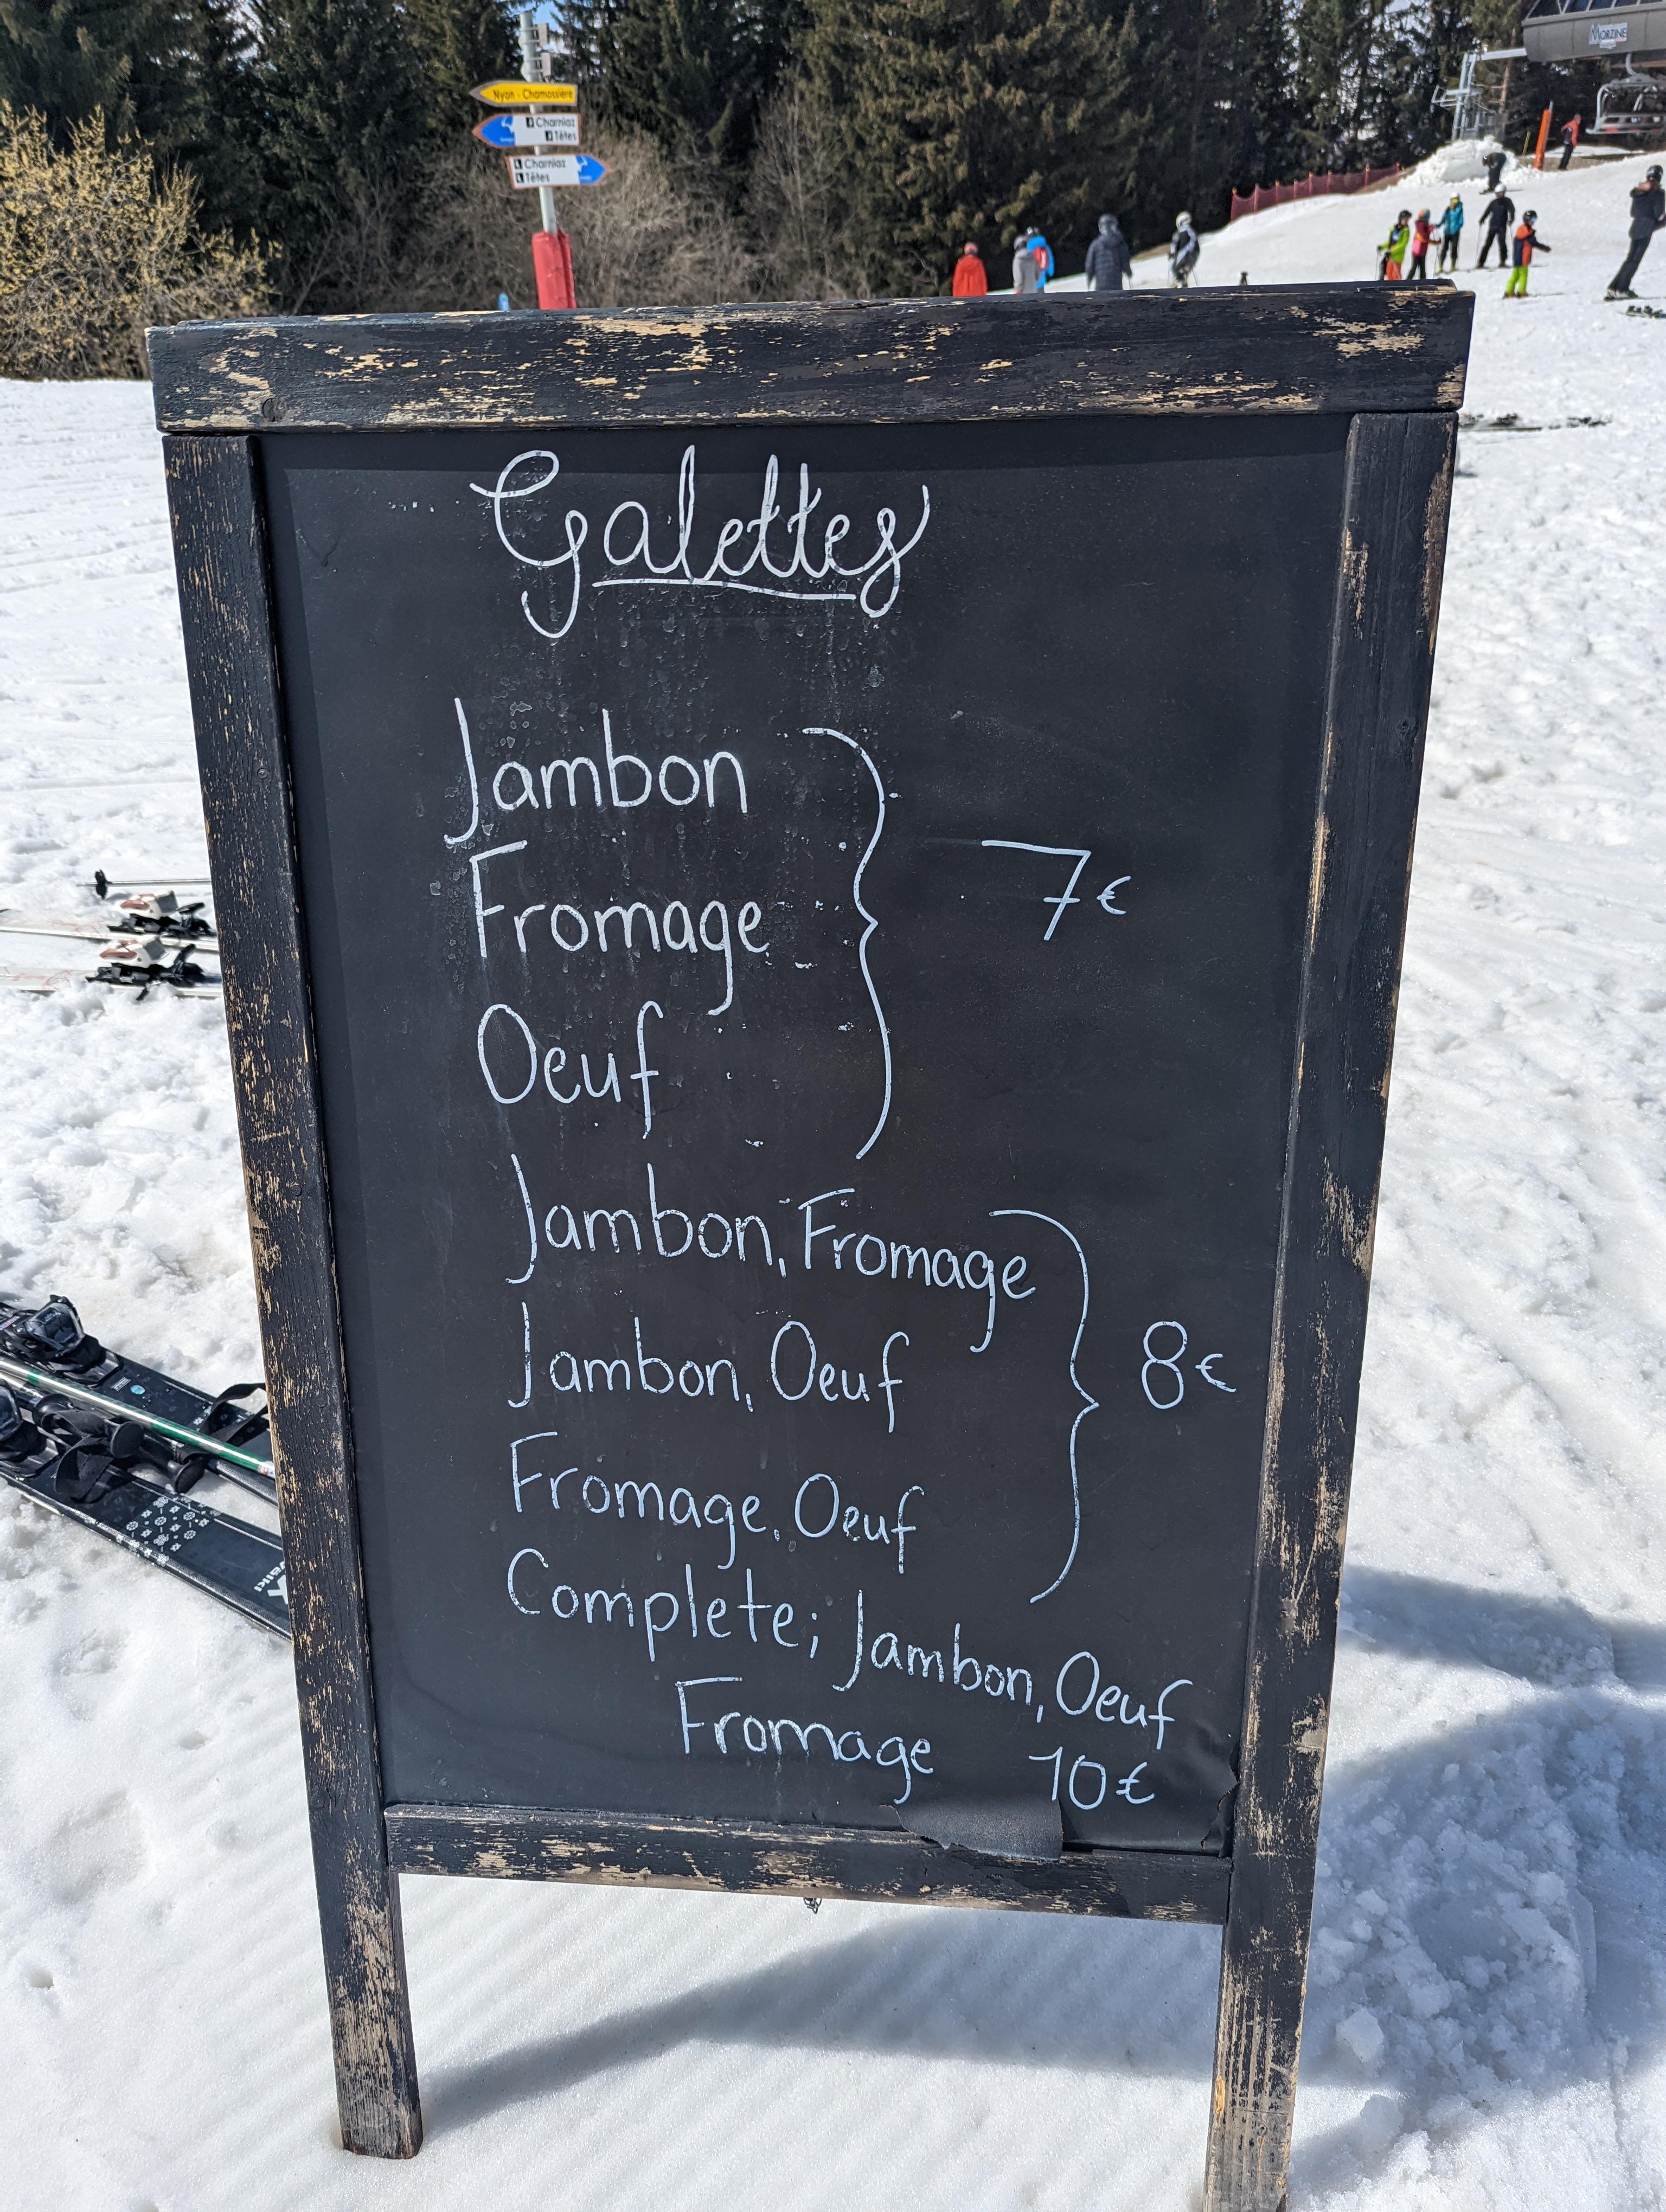 MORZINE
Nyon - Chamossière
Charniaz
Têtes
Charniaz
Têtes
Galettes
Jambon
Fromage
Oeuf
7€
Jambon, Fromage
Jambon, Oeuf
Fromage, Oeuf
8€
Complete; Jambon, Oeuf
Fromage 10€